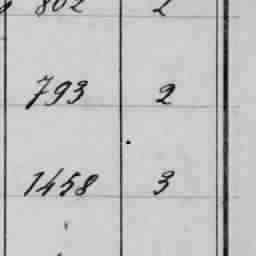 802 2
793 2
1458 3